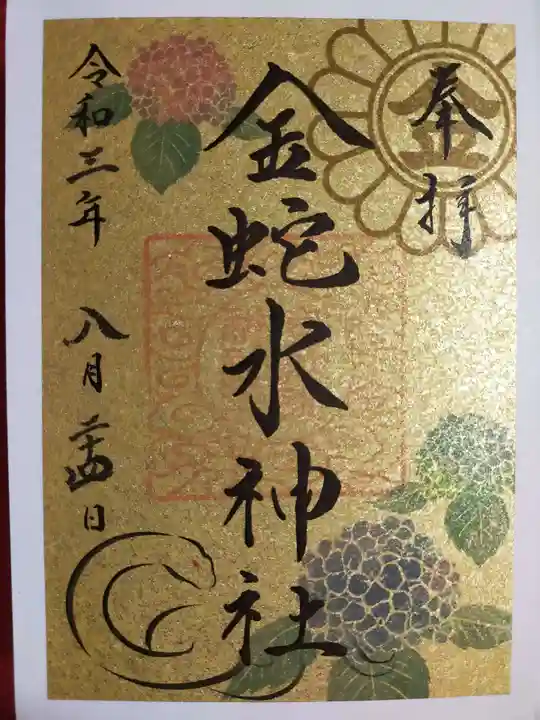 奉拝
金蛇水神社
令和三年 八月廿四日
金